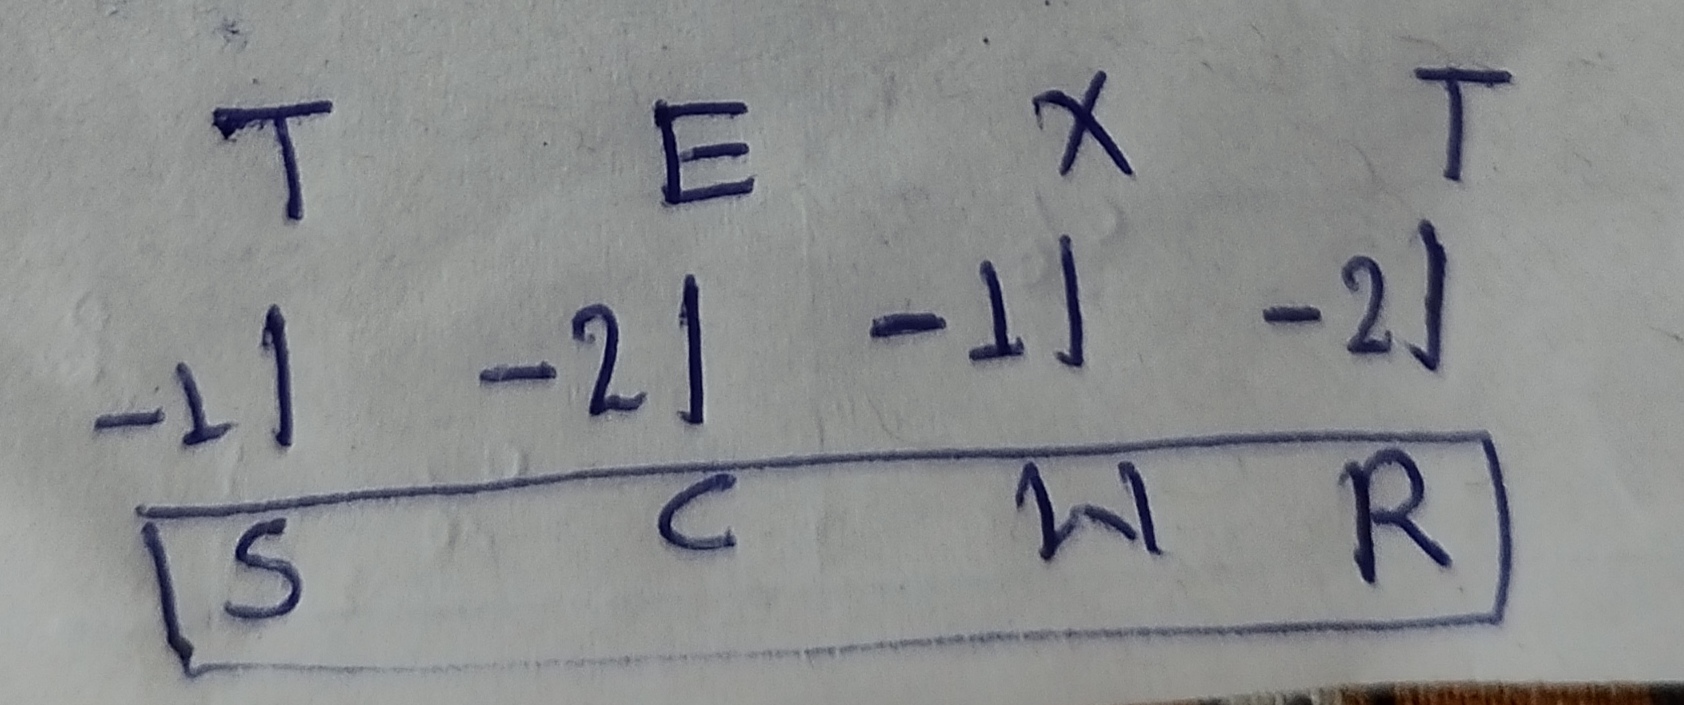 T E X T
-1 -2 -1 -2
S C W R